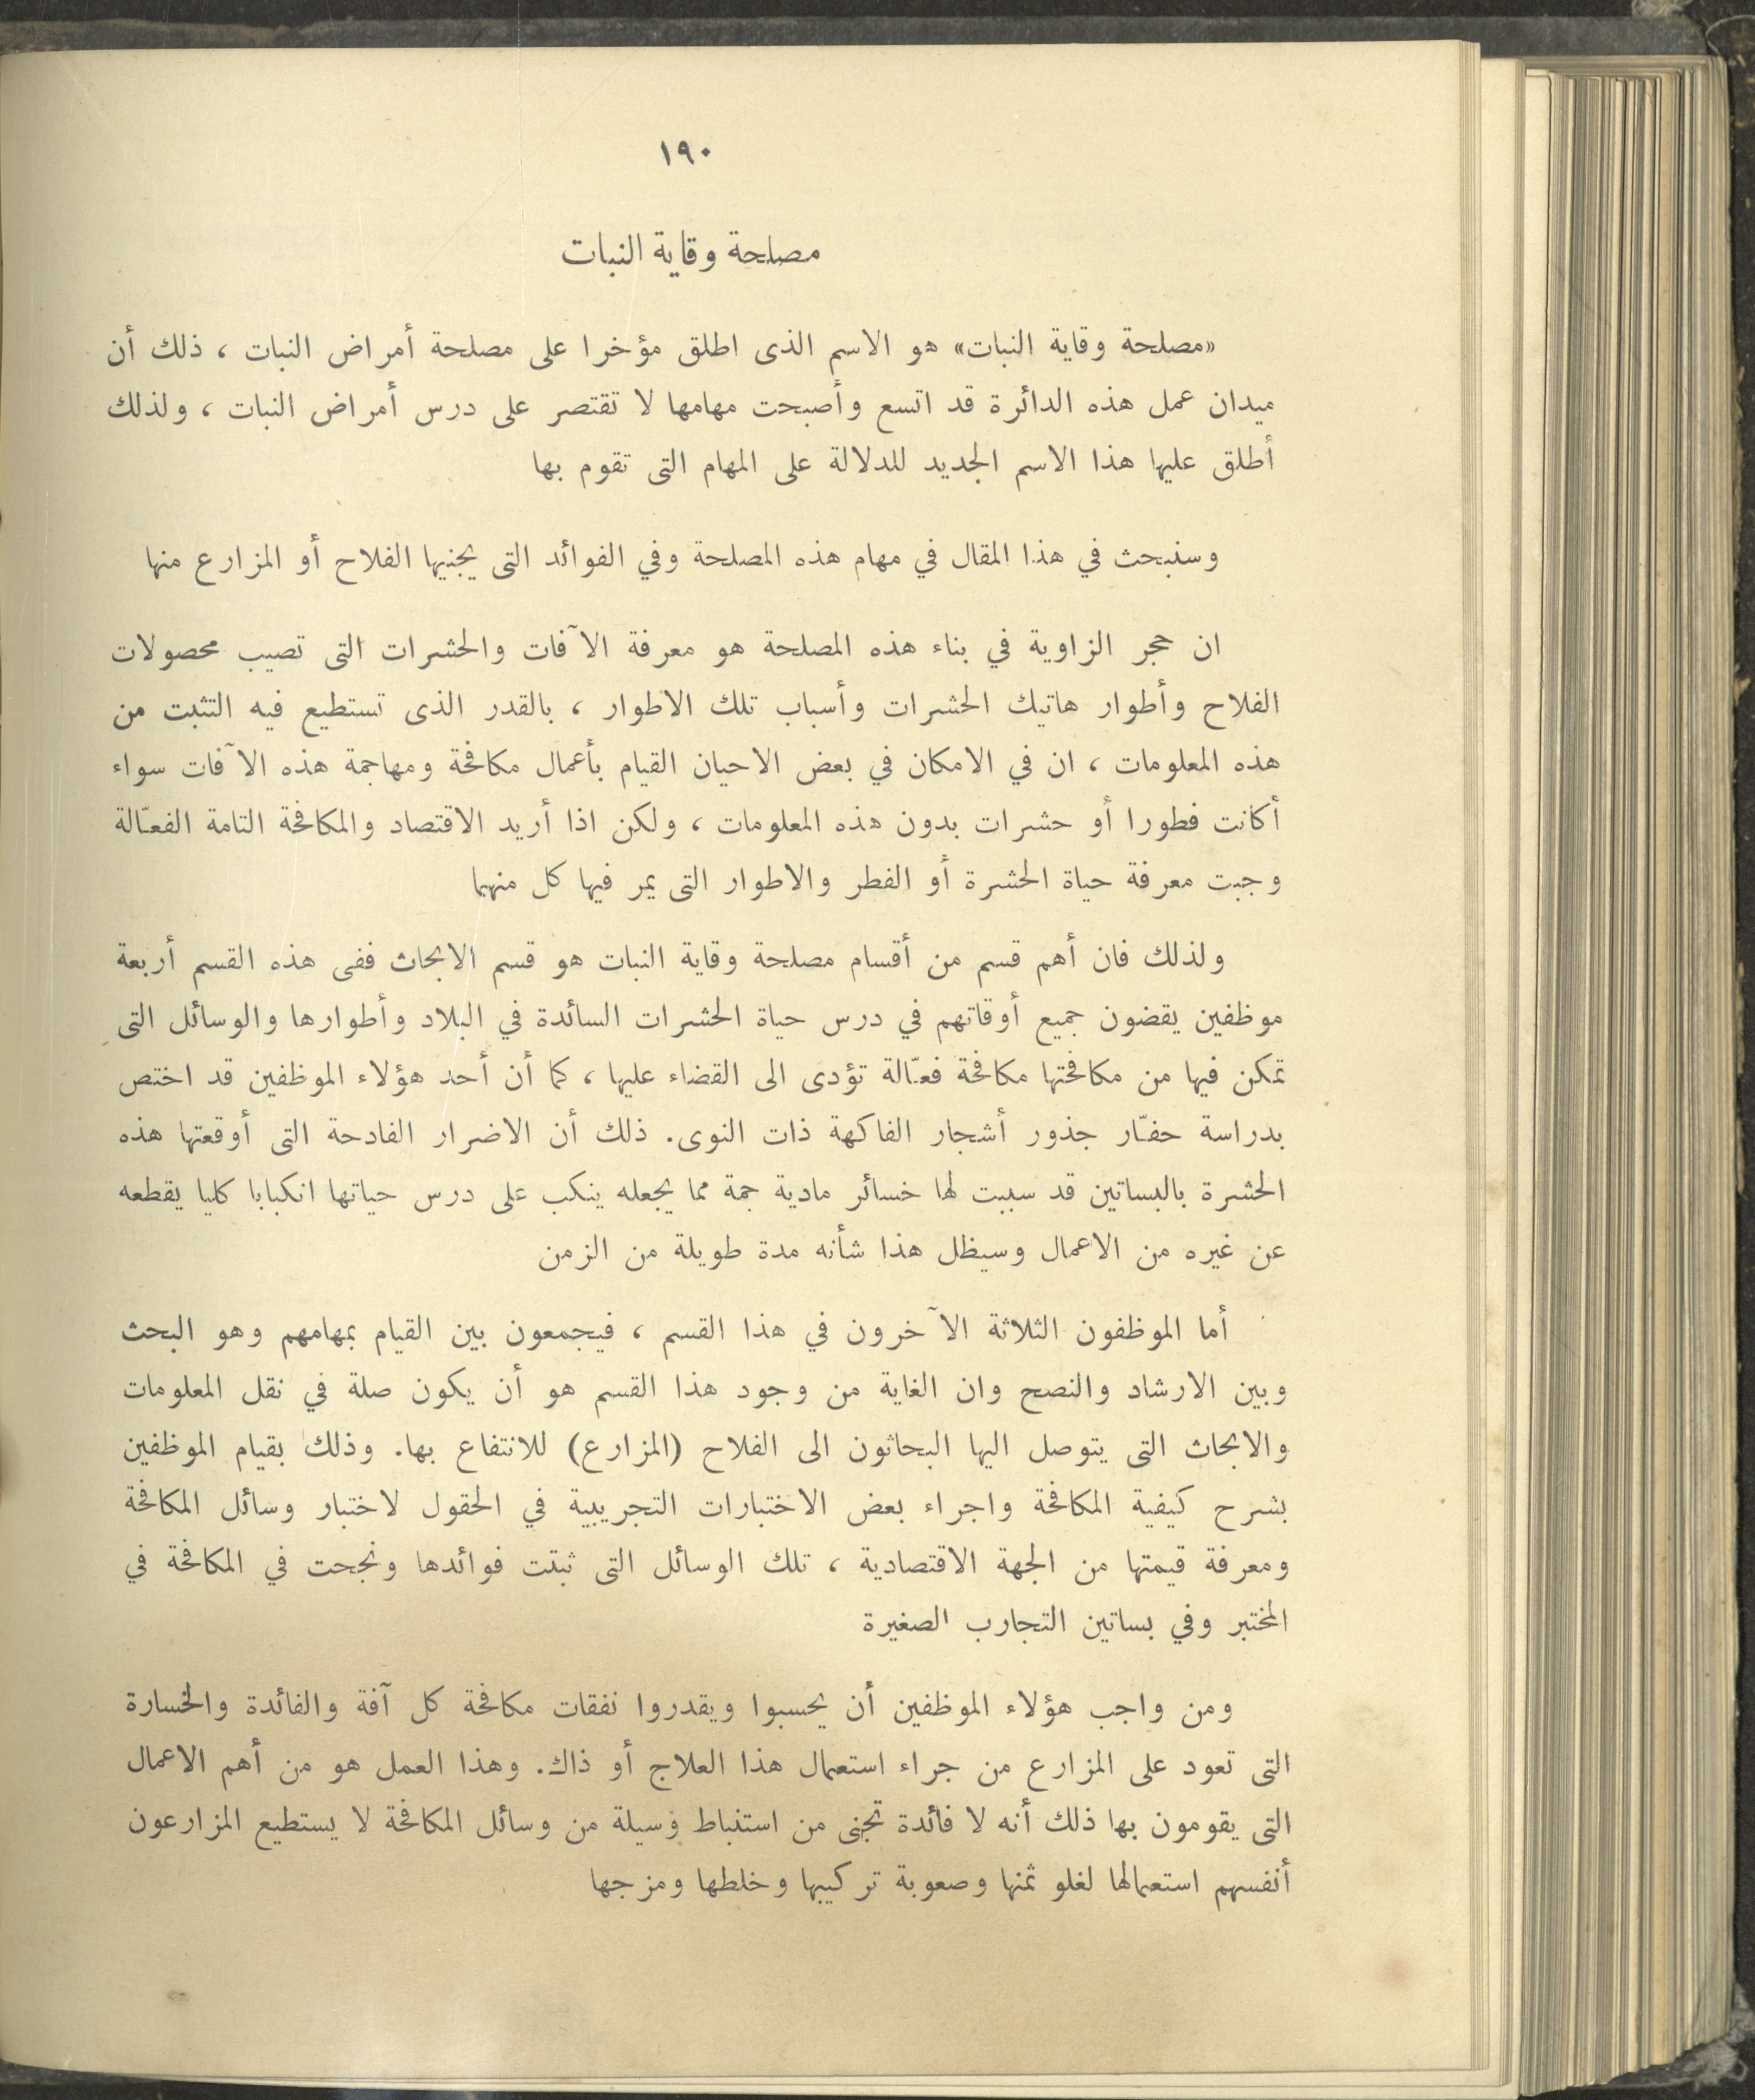 ١٩٠
مصلحة وقاية النبات
«مصلحة وقاية النبات» هو الاسم الذى اطلق مؤخرا على مصلحة أمراض النبات ، ذلك أن
ميدان عمل هذه الدائرة قد اتسع وأصبحت مهامها لا تقتصر على درس أمراض النبات ، ولذلك
أطلق عليها هذا الاسم الجديد للدلالة على المهام التى تقوم بها
وسنبحث في هذا المقال في مهام هذه المصلحة وفي الفوائد التى يجنيها الفلاح أو المزارع منها
ان حجر الزاوية في بناء هذه المصلحة هو معرفة الآفات والحشرات التى تصيب محصولات
الفلاح وأطوار هاتيك الحشرات وأسباب تلك الاطوار ، بالقدر الذى تستطيع فيه التثبت من
هذه المعلومات ، ان في الامكان في بعض الاحيان القيام بأعمال مكافحة ومهاجمة هذه الآفات سواء
أكانت فطورا أو حشرات بدون هذه المعلومات ، ولكن اذا أريد الاقتصاد والمكافحة التامة الفعّالة
وجبت معرفة حياة الحشرة أو الفطر والاطوار التى يمر فيها كل منهما
ولذلك فان أهم قسم من أقسام مصلحة وقاية النبات هو قسم الابحاث ففى هذه القسم أربعة
موظفين يقضون جميع أوقاتهم في درس حياة الحشرات السائدة في البلاد وأطوارها والوسائل التى
تمكن فيها من مكافحتها مكافحة فعّالة تؤدى الى القضاء عليها ، كما أن أحد هؤلاء الموظفين قد اختص
بدراسة حفّار جذور أشجار الفاكهة ذات النوى. ذلك أن الاضرار الفادحة التى أوقعتها هذه
الحشرة بالبساتين قد سببت لها خسائر مادية جمة مما يجعله ينكب على درس حياتها انكبابا كليا يقطعه
عن غيره من الاعمال وسيظل هذا شأنه مدة طويلة من الزمن
أما الموظفون الثلاثة الآخرون في هذا القسم ، فيجمعون بين القيام بمهامهم وهو البحث
وبين الارشاد والنصح وان الغاية من وجود هذا القسم هو أن يكون صلة في نقل المعلومات
والابحاث التى يتوصل اليها البحاثون الى الفلاح (المزارع) للانتفاع بها. وذلك بقيام الموظفين
بشرح كيفية المكافحة واجراء بعض الاختبارات التجريبية في الحقول لاختبار وسائل المكافحة
ومعرفة قيمتها من الجهة الاقتصادية ، تلك الوسائل التى ثبتت فوائدها ونجحت في المكافحة في
المختبر وفي بساتين التجارب الصغيرة
ومن واجب هؤلاء الموظفين أن يحسبوا ويقدروا نفقات مكافحة كل آفة والفائدة والخسارة
التى تعود على المزارع من جراء استعمال هذا العلاج أو ذاك. وهذا العمل هو من أهم الاعمال
التى يقومون بها ذلك أنه لا فائدة تجنى من استنباط وسيلة من وسائل المكافحة لا يستطيع المزارعون
أنفسهم استعمالها لغلو ثمنها وصعوبة تركيبها وخلطها ومزجها